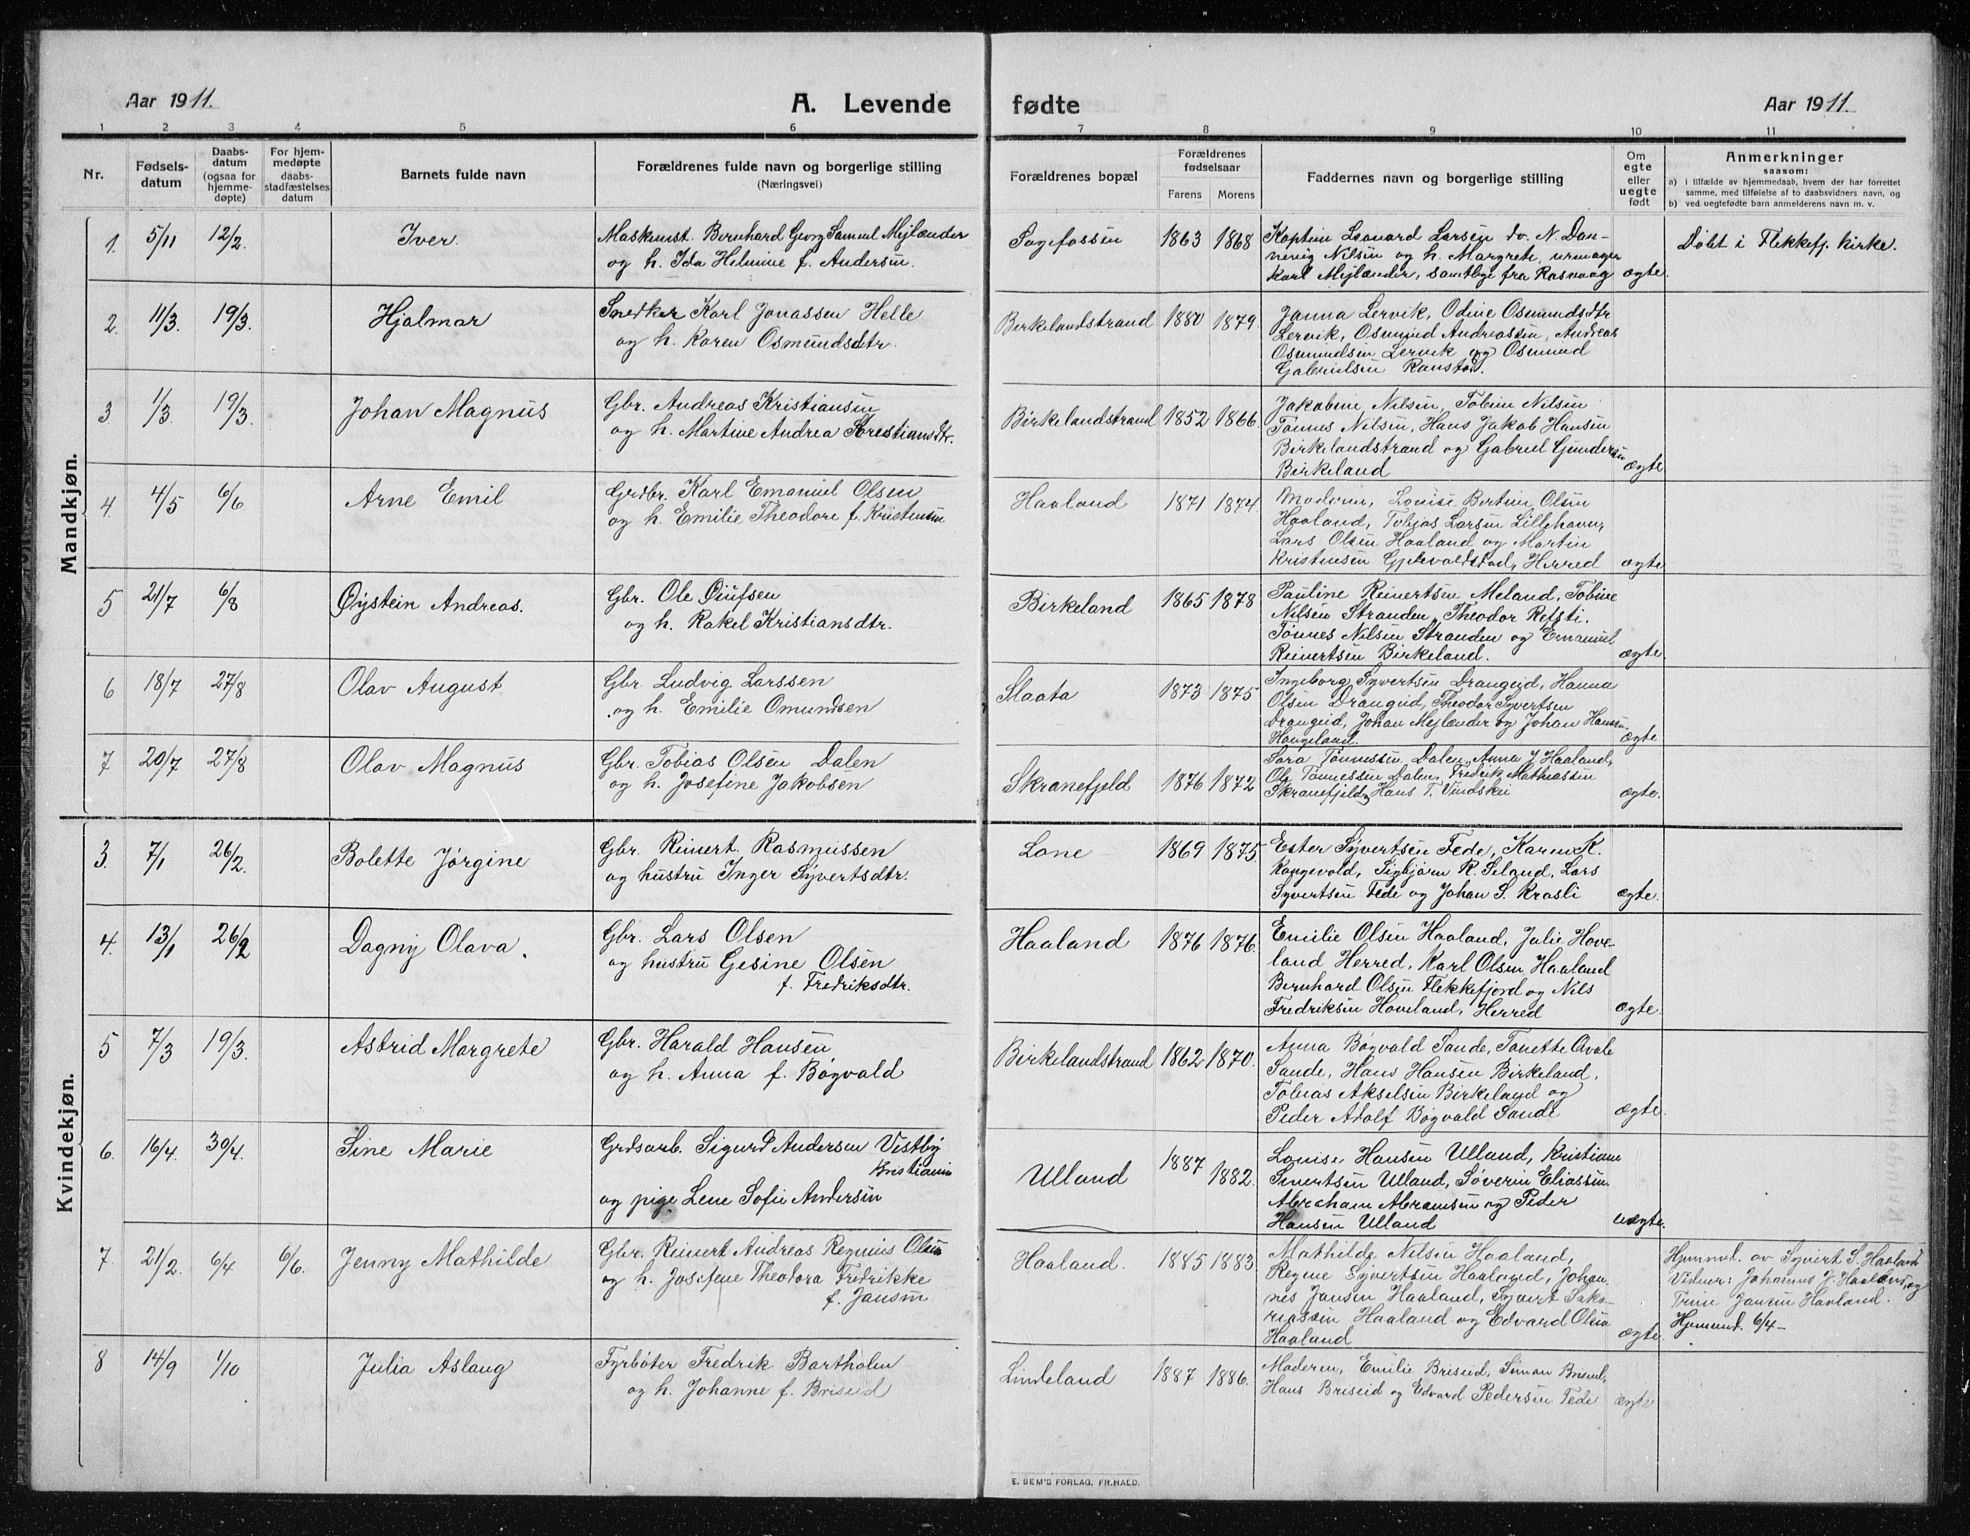 Aar 1911.
A. Levende
fødte
Aar 1911.
1 2 3 4 5 6 7 8 9 10 11
Nr.
Fødsels-
datum
Daabs-
datum
(ogsaa for
hjemme-
døpte)
For hjem-
medøpte
daabs-
stadfæstelses
datum
Barnets fulde navn
Forældrenes fulde navn og borgerlige stilling
(Næringsvei)
Forældrenes bopæl
Forældrenes
fødselsaar
Farens Morens
Faddernes navn og borgerlige stilling
Om
egte
eller
uegte
født
Anmerkninger
saasom:
a) i tilfælde av hjemmedaab, hvem der har forrettet
samme, med tilføielse af to daabsvidners navn, og
b) ved uegtefødte barn anmelderens navn m. v.
Mandkjøn.
1. 5/11 12/2. Iver.
Maskinist. Bernhard Georg Samuel Mejlænder
og h. Ida Helmine f. Andersen.
Sagefossen 1863 1868
Kaptein Leonard Larsen
Nilsen og h. Margrete, urmager
Karl Mejlænder, samtlige fra Rasvaag
ægte.
Døbt i Flekkefj. kirke.
2. 11/3. 19/3. Hjalmar
Snedker Karl Jonassen Helle
og h. Karen Osmundsdtr.
Birkelandstrand 1880 1879.
Janna Lervik, Odine Osmundsdtr
Lervik, Osmund Andreassen, Andreas
Osmundsen Lervik og Osmund
Gabrielsen
3 1/3 19/3. Johan Magnus
Gbr. Andreas Kristiansen
og h. Martine Andrea
Birkelandstrand 1852 1866.
Jakobine Nilsen, Tobine Nilsen
Tønnes Nilsen, Hans Jakob Hansen
Birkelandstrand og Gabriel Gundersen
Birkeland
ægte
4. 4/5 6/6 Arne Emil
Grdbr. Karl Emanuel Olsen
og h. Emilie Theodore f. Kristensen
Haaland 1871 1874.
Moderen, Louise Bertine Olsen
Haaland, Tobias Larsen Lillehavn,
Lars Olsen Haaland og Martin
Kristensen Herred
ægte
5 21/7 6/8 Øystein Andreas.
Gbr. Ole
og h. Rakel Kristiansdtr.
Birkeland 1865 1878
Pauline Reinertsen Meland, Tobine
Nilsen Stranden, Theodor Refsti.
Tønnes Nilsen Stranden og Emanuel
Reinertsen Birkeland.
ægte.
6 18/7 27/8 Olav August
Gbr. Ludvig Larssen
og h. Emilie Omundsen
Slaata 1873 1875
Ingeborg Syvertsen Drangeid, Hanna
Olsen Drangeid, Theodor Syvertsen
Drangeid, Johan Mejlænder og Johan Hansen
Haugeland.
ægte
7 20/7 27/8 Olav Magnus
Gbr. Tobias Olsen Dalen
og h. Josefine Jakobsen
Skranefjeld 1876 1872
Sara Tønnessen Dalen, Anna J. Haaland,
Ole Tønnessen Dalen, Fredrik Mathiassen
Skranefjeld, Hans T. Vindskei
ægte.
Kvindekjøn.
3. 7/1 26/2. Bolette Jørgine
Gbr. Reinert Rasmussen
og hustru Inger Syvertsdtr.
Lone 1869 1875
Ester Syvertsen Fede, Karen K.
Kongevold, Sigbjørn R. Seland, Lars
Syvertsen Fede og Johan S. Krosli
ægte.
4. 13/1 26/2 Dagny Olava.
Gbr. Lars Olsen
og hustru Gesine Olsen
f. Fredriksdtr.
Haaland 1876 1876.
Emilie Olsen Haaland, Julie Hove-
land Herred, Karl Olsen Haaland
Bernhard Olsen Flekkefjord og Nils
Fredriksen Hoveland, Herred
ægte.
5 7/3 19/3. Astrid Margrete
Gbr. Harald Hansen
og h. Anna f. Bøgvald
Birkelandstrand 1862 1870.
Anna Bøgvald Sande, Tonette
Sande, Hans Hansen Birkeland,
Tobias Akselsen Birkeland og
Peder Adolf Bøgvald Sande
ægte.
6. 16/4. 30/4. Sine Marie
Grdsarb. Sigurd Andersen Vestby
Kristiania
og pige Lene Sofie Andersen
Ulland 1887 1882.
Louise Hansen Ulland, Kristiane
Ulland, Søverin Eliassen
Abraham Abramsen og Peder
Hansen Ulland
uægte.
7. 21/2. 6/4 6/6. Jenny Mathilde
Gbr. Reinert Andreas Regnius Olsen
og h. Josefine Theodora Fredrikke
f. Jansen
Haaland. 1885 1883
Mathilde Nilsen Haaland,
Regine Syvertsen Haaland, Johan-
nes Jansen Haaland, Syvert Saka-
riassen Haaland og Edvard Olsen
Haaland
ægte.
Hjemmed. av Syvert S. Haaland
Vidner: Johannes J. Haaland, og
Trine Jansen Haaland.
Hjemmed. 6/4 –
8 14/9 1/10 Julia Aslaug
Fyrbøter Fredrik Bartholm
og h. Johanne f. Briseid
Lindeland 1887 1886.
Moderen, Emilie Briseid, Simon Briseid,
Hans Briseid og Edvard Pedersen Fede
ægte
E. SEM'S FORLAG, FR.HALD.